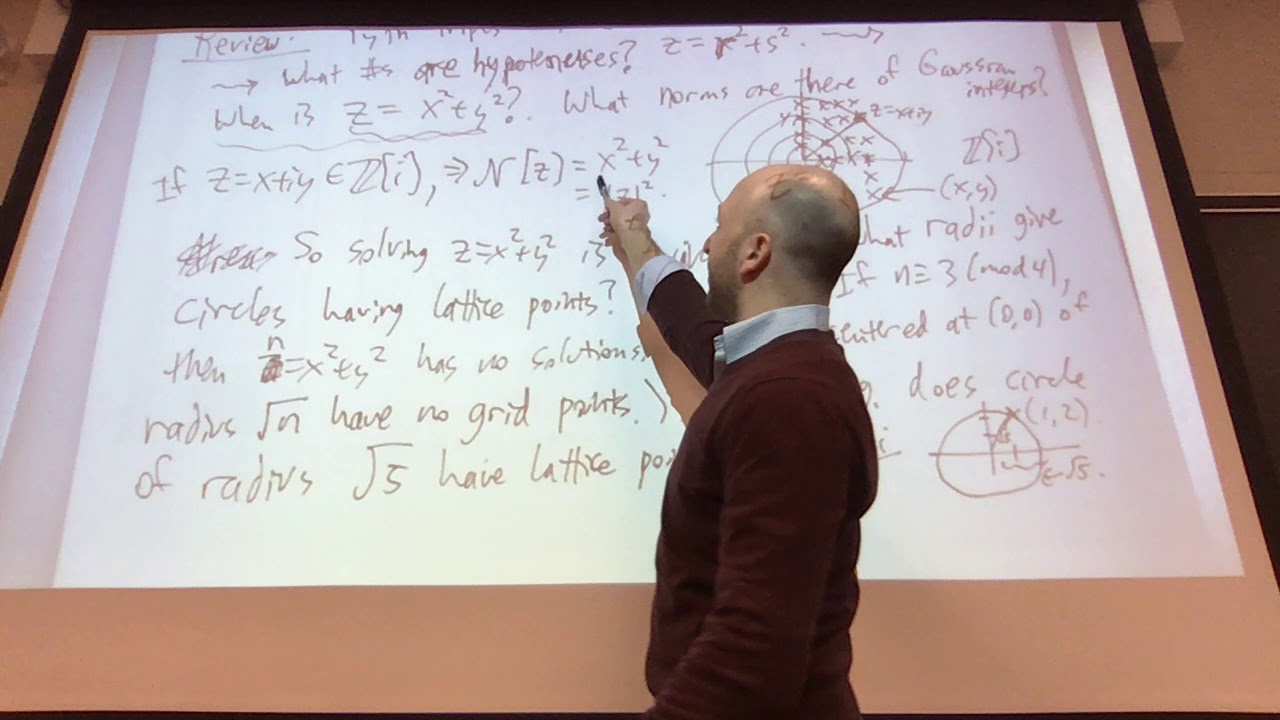 Review:
z = r²+s². ⟿
⟿ What #s are hypotenuses?
When is z = x²+y²? What norms are there of Gaussian integers?
z=x+iy
If z=x+iy ∈ ℤ[i], ⇒ N[z] = x²+y²
= |z|².
ℤ[i]
(x,y)
So solving z=x²+y² is
what radii give
circles having lattice points?
If n≡3 (mod 4),
then n=x²+y² has no solutions.
centered at (0,0) of
radius √n have no grid points.)
does circle
of radius √5 have lattice
(1,2)
√5.